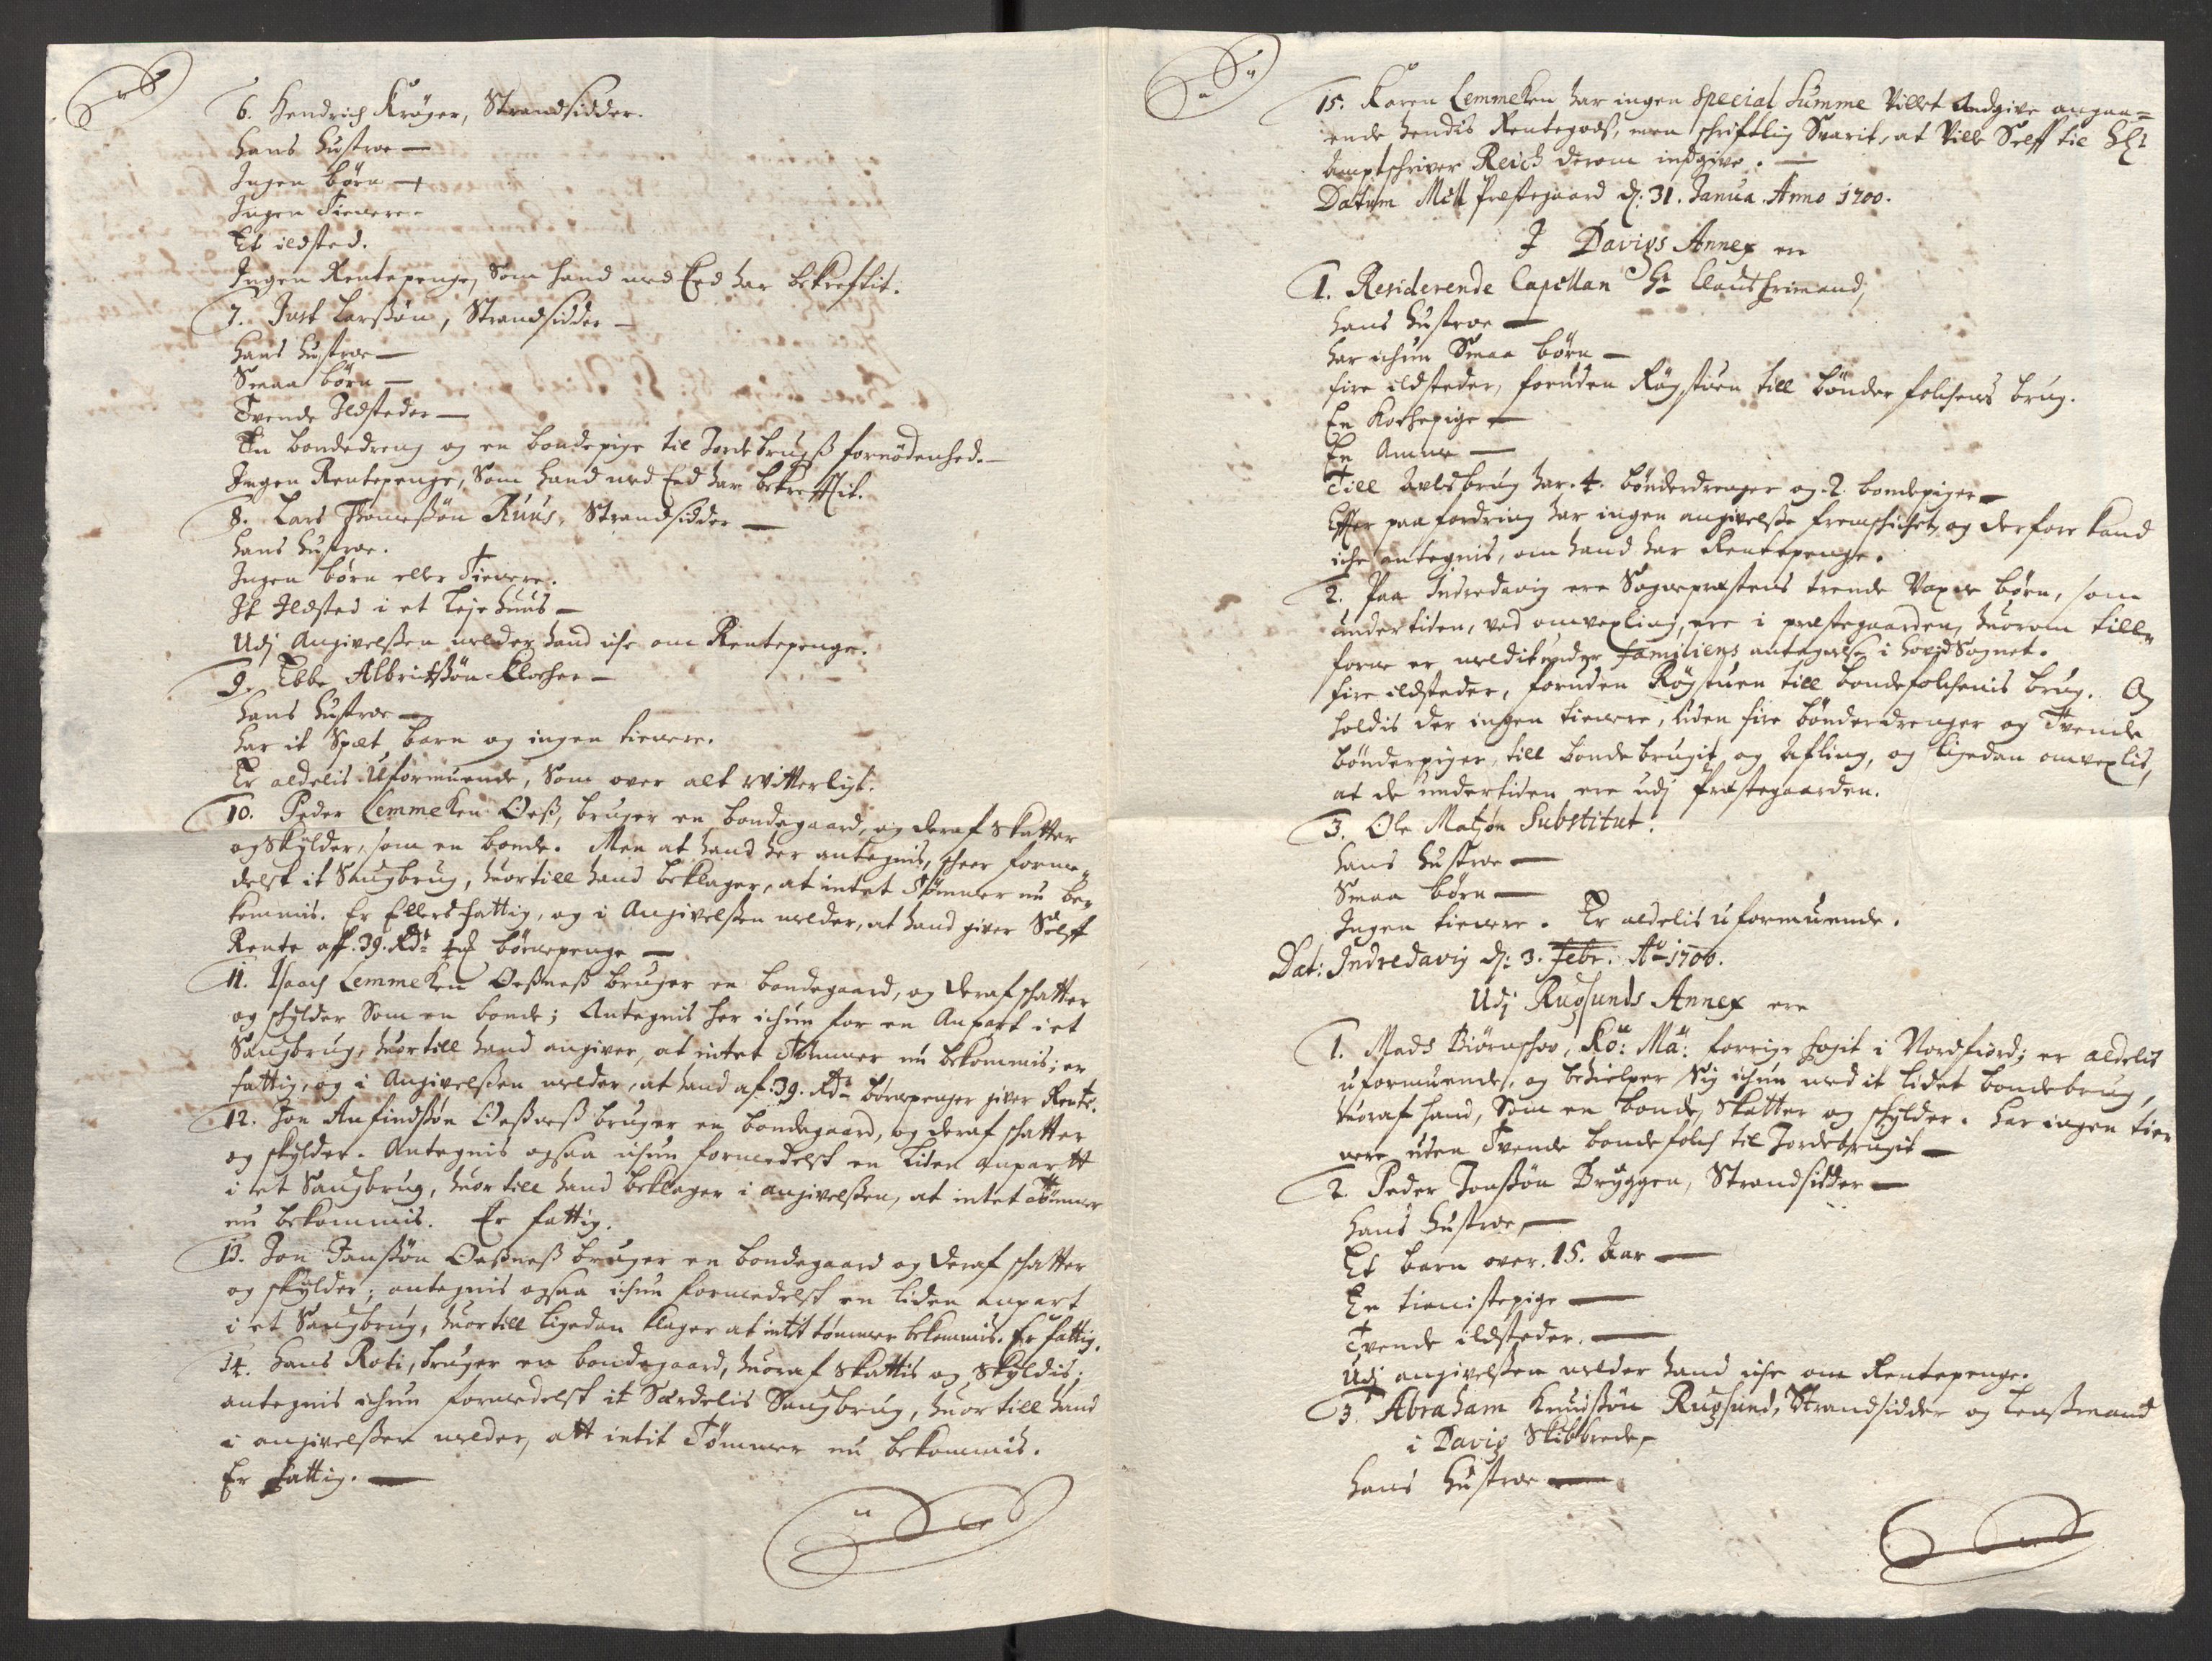 6. Hendrich Krøger, Strandsidder.
Hans Hustroe —
Ingen børn —
Ingen Tienere.
Et ildsted.
Ingen Rentepenge, Som hand med Eed har bekreftit.
7. Just Larssøn, Strandsidder —
Hans Hustroe —
Smaa børn —
Tvende Ildsteder —
En bondedreng og en bondepige til Jordebrugß fornødenhed. —
Ingen Rentepenge, Som hand med Eed har bekrefftit.
8. Lars Thomeßøn Ruus, Strandsidder —
Hans Hustroe.
Ingen børn eller Tienere.
It Ildsted i et Leje Huus —
Udj Angivelßen melder hand iche om Rentepenge.
9. Ebbe Albritßøn Klocher —
Hans Hustroe —
har it Spæt barn og ingen tienere.
Er aldelis Uformuende, Som over alt vitterligt.
10. Peder Lemmeken Oeß, bruger en bondegaard, og deraf skatter
og skylder, som en bonde. Men at hand her antegnis, scheer forme-
delst it Saugbrug, huortill hand beklager, at intet Tømmer nu be-
kommis. Er Ellers fattig, og i Angivelßen melder, at hand giver Selff
Rente aff. 39. Rdr børnepenge —
11. Isaach Lemmeken Oeßneß bruger en bondegaard, og deraf schatter
og schylder Som en bonde; Antegnis her ichun for en Anpart i et
Saugbrug, huortill hand angiver, at intet Tømmer nu bekommis; er
fattig, og i Angivelßen melder, at hand af. 39. Rdr børnepenger giver Rente.
12. Jon Anfindßøn Oeßneß bruger en bondegaard, og deraf schatter
og skylder. Antegnis ogsaa ichun formedelst en Liden anpartt
i et Saugbrug, huortill hand beklager i angivelßen, at intet Tømmer
nu bekommis. Er fattig.
13. Jon Janßøn Oeßneß bruger en bondegaard og deraf schatter
og skylder; antegnis ogsaa ichun formedelst en liden anpart
i et Saugbrug, huortill ligedan klager at intet tømmer bekommis. Er fattig.
14. Hans Roti, bruger en bondegaard, huoraf skattis og skyldis;
antegnis ichun formedelst it Særdelis Saugbrug, huortill hand
i angivelßen melder, att intit Tømmer nu bekommis.
Er fattig. —
15. Karen Lemmeken har ingen Special Summe Villet Andgive angaa-
ende hendis Rentegods, men schriftlig Svarit, at Ville Selff til Hr
Amptschriver Reich derom indgive. —
Datum Præstegaard d: 31. Janua. Anno 1700.
I Davigs Annex ere
1. Residerende Capellan Hr Claus Frimand,
Hans Hustroe —
har ichun Smaa børn —
fire ildsteder, foruden Røgstuen till bønder folchens brug.
En Kochepige —
En Amme —
Till Avlsbrug har. 4. bønderdrenger og. 2. bondepiger —
Effter paafordring har ingen angivelße fremschichet, og derfore kand
iche antegnis, om hand har Rentepenge.
2. Paa Indredavig ere Sognepræstens trende Voxne børn, som
undertiden, ved omvexling, ere i præstegaarden, huorom till-
forne er meldit under familiens antegnelse i hovidSognet.
Fire ildsteder, foruden Røgstuen till bondefolchenis brug. Og
holdis der ingen tienere, uden fire bønderdrenger og Tvende
bønderpiger, till bondebrugit og Afling, og ligedan omvexlis,
at de undertiden ere udj Præstegaarden.
3. Ole Matzøn Substitut.
Hans Hustroe —
Smaa børn —
Ingen tienere. Er aldelis uformuende.
Dat: Indredavig d: 3. Febr. Ao 1700.
Udj Rugsunds Annex ere
1. Mads Biørnschov, Kö: Mä: forrige fogit i Nordfiord; er aldelis
uformuende, og behielper Sig ichun med it lidet bondebrug,
huoraf hand, Som en bonde, skatter og schylder. Har ingen tie-
nere uden Tvende bondefolch til Jordebrugit —
2. Peder Jonßøn Bryggen, Strandsidder —
Hans Hustroe, —
Et barn over. 15. Aar —
En tienistepige —
Tvende ildsteder. —
Udj angivelßen melder hand iche om Rentepenge.
3. Abraham Knudßøn Rugsund, Strandsidder og Lenßmand
i Davig Skibbrede,
Hans Hustroe —